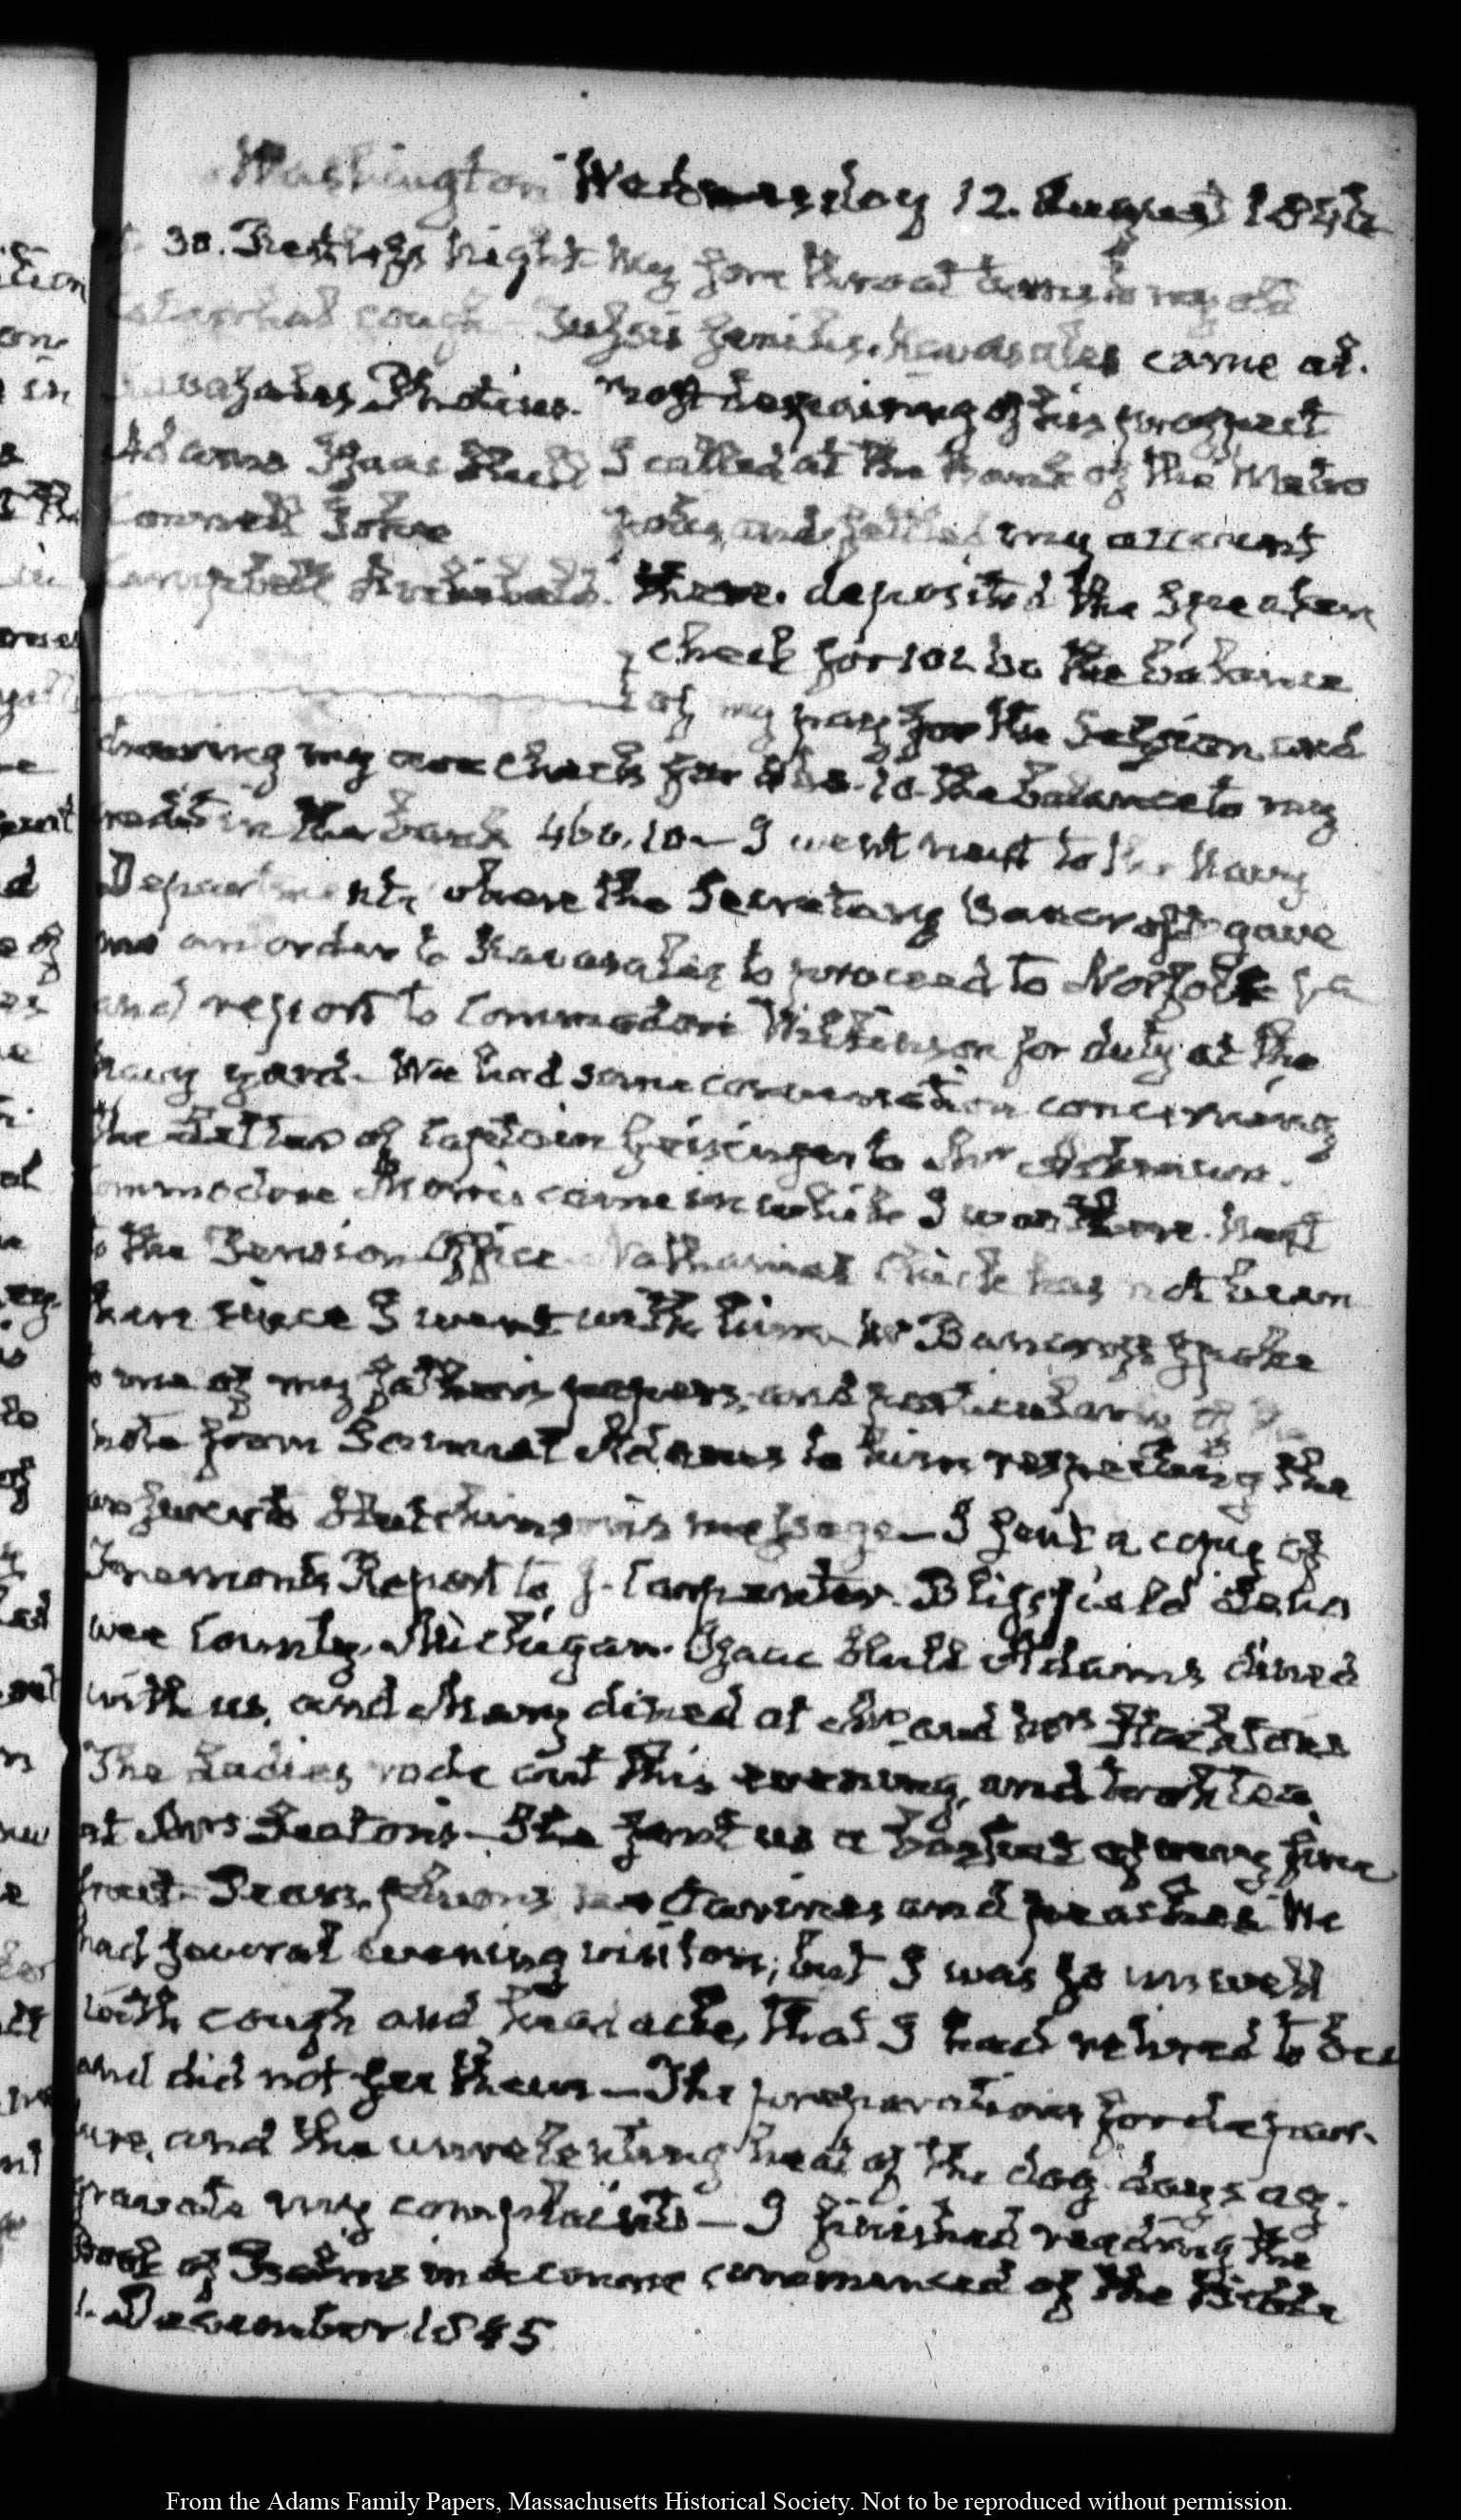 Washington Wednesday 12. August 1846
30. Restless night. My sore throat turns to my old
catarrhal cough. Tussis senilis. Kavasales came at.
Kavasales Photius. most despairing of his prospect
Adams Isaac Hull I called at the Bank of the Metro
Connell John polis, and settled my account
Campbell Archibald. there. deposited the Speaker's
check for 102 the balance
of my pay for the Session and
drawing my own check for the balance to my
credit in the bank 460.10 — I went next to the Navy
Department, where the Secretary Bancroft gave
me an order to Kavasales to proceed to Norfolk Va
and report to Commodore Wilkinson for duty at the
Navy yard. We had some conversation concerning
the Letter of Captain Geisinger to Mr
Commodore Morris came in while I was there. Next
to the Pension Office Nathaniel has not been
here since I went with him. Mr Bancroft spoke
to me of my father's papers, and particularly of the
note from Samuel Adams to him respecting the
answer to Hutchinson's message — I sent a copy of
Fremont's Report to J. Carpenter. Blissfield Lena
wee County, Michigan. Isaac Hull Adams dined
with us, and Mary dined at Mr and Mrs
The Ladies rode out this evening, and took tea
at Mrs Seaton's — She sent us a basket of very fine
fruit. Pears, plums nectarines and peaches. We
had several evening visitors; but I was so unwell
with cough and headache, that I had retired to bed
and did not see them — The preparations for depart-
ure, and the unrelenting heat of the dog days ag-
gravate my complaints — I finished reading the
Book of Psalms in course commenced of the Bible
1. December 1845
From the Adams Family Papers, Massachusetts Historical Society. Not to be reproduced without permission.